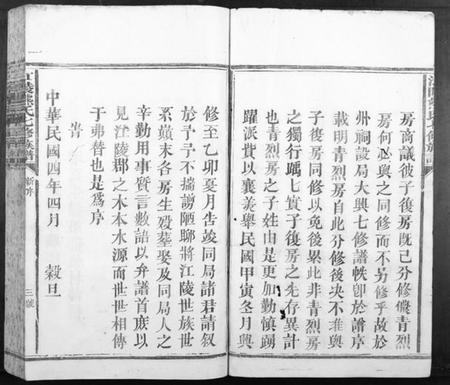 房商議彼子復房既已分修儻青烈
房何必與之同修而不另修乎故於
州祠設局大興七修譜帙卽於譜序
載明青烈房自此分修後决不準與
子復房同修以免後累此非青烈房
之獨行踽踽實子復房之先存異計
也青烈房之子姓由是更加勤慎踴
躍派費以襄美舉民國甲寅冬月興
修至乙卯夏月告竣同局諸君請叙
於予予不揣謭陋聊將江陵世族世
系顚末各房生殁塟娶及同局人之
辛勤用事質言數語以弁譜首庶以
見江陵郡之木本水源而世世相傳
于弗替也是爲序
旹
中華民國四年四月 穀旦
新序
三號